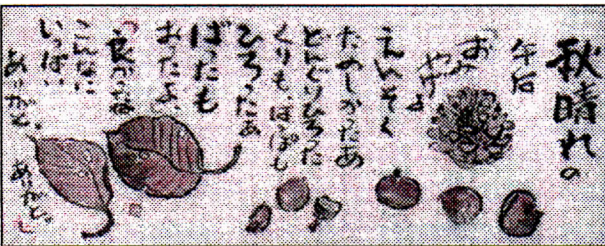 秋晴れの
午后
「おみやげよ
えんそく
たのしかったあ
どんぐりひろった
くりも、はっぱも
ひろったぁ
ばったも
おったよ」
「良かったね
こんなに
いっぱい
ありがと。
ありがと。」